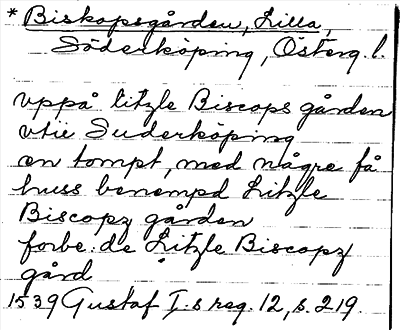 * Biskopsgården, Lilla,
Söderköping, Österg. l.
vppå litzle Biscops gården
vtie Suderköping
en tompt, med någre få
huss benempd Litzle
Biscopz gården
forbe: de Litzle Biscopz
gård
1539 Gustaf I.s reg. 12, s. 219.